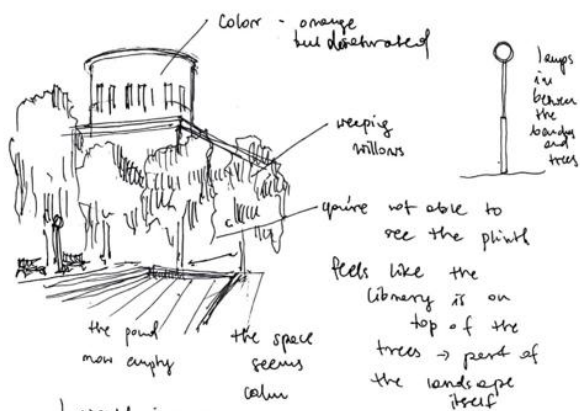 color - orange
but desaturated
lamps
in
between
the
and
trees
weeping
willows
you're not able to
see the plinth
feels like the
library is on
top of the
trees → part of
the landscape
itself
the pond
now empty
the space
seems
calm